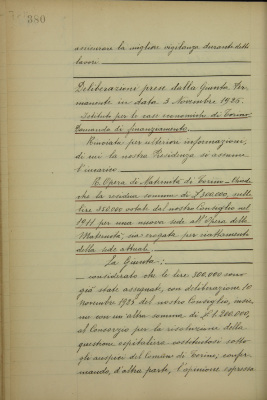 380
assicurare la migliore vigilanza durante detti
lavori
Deliberazioni prese dalla Giunta Per-
manente in data 3 Novembre 1925.
Istituti per le case economiche di Torino
Domanda di finanziamento.
Rinviata per ulteriori informazioni,
di cui la nostra Presidenza si assume
l'incarico
R. Opera di Maternità di Torino - Chiede
che la residua somma di £ 300.000, sulle
lire 350.000 votate dal nostro Consiglio nel
1911 per una nuova sede all'Opera della
Maternità, sia erogata per riattamenti
della sede attuale.
La Giunta:
considerato che le lire 300,000 sono
già state assegnate, con deliberazione 10
novembre 1921 del nostro Consiglio, insie-
me con un'altra somma di £ 200.000,
al Consorzio per la risoluzione della
questione ospitaliera costituitosi sotto
gli auspici del Comune di Torino; confer-
mando, d'altra parte, l'opinione espressa